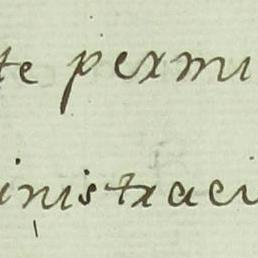 te permi
inistraci